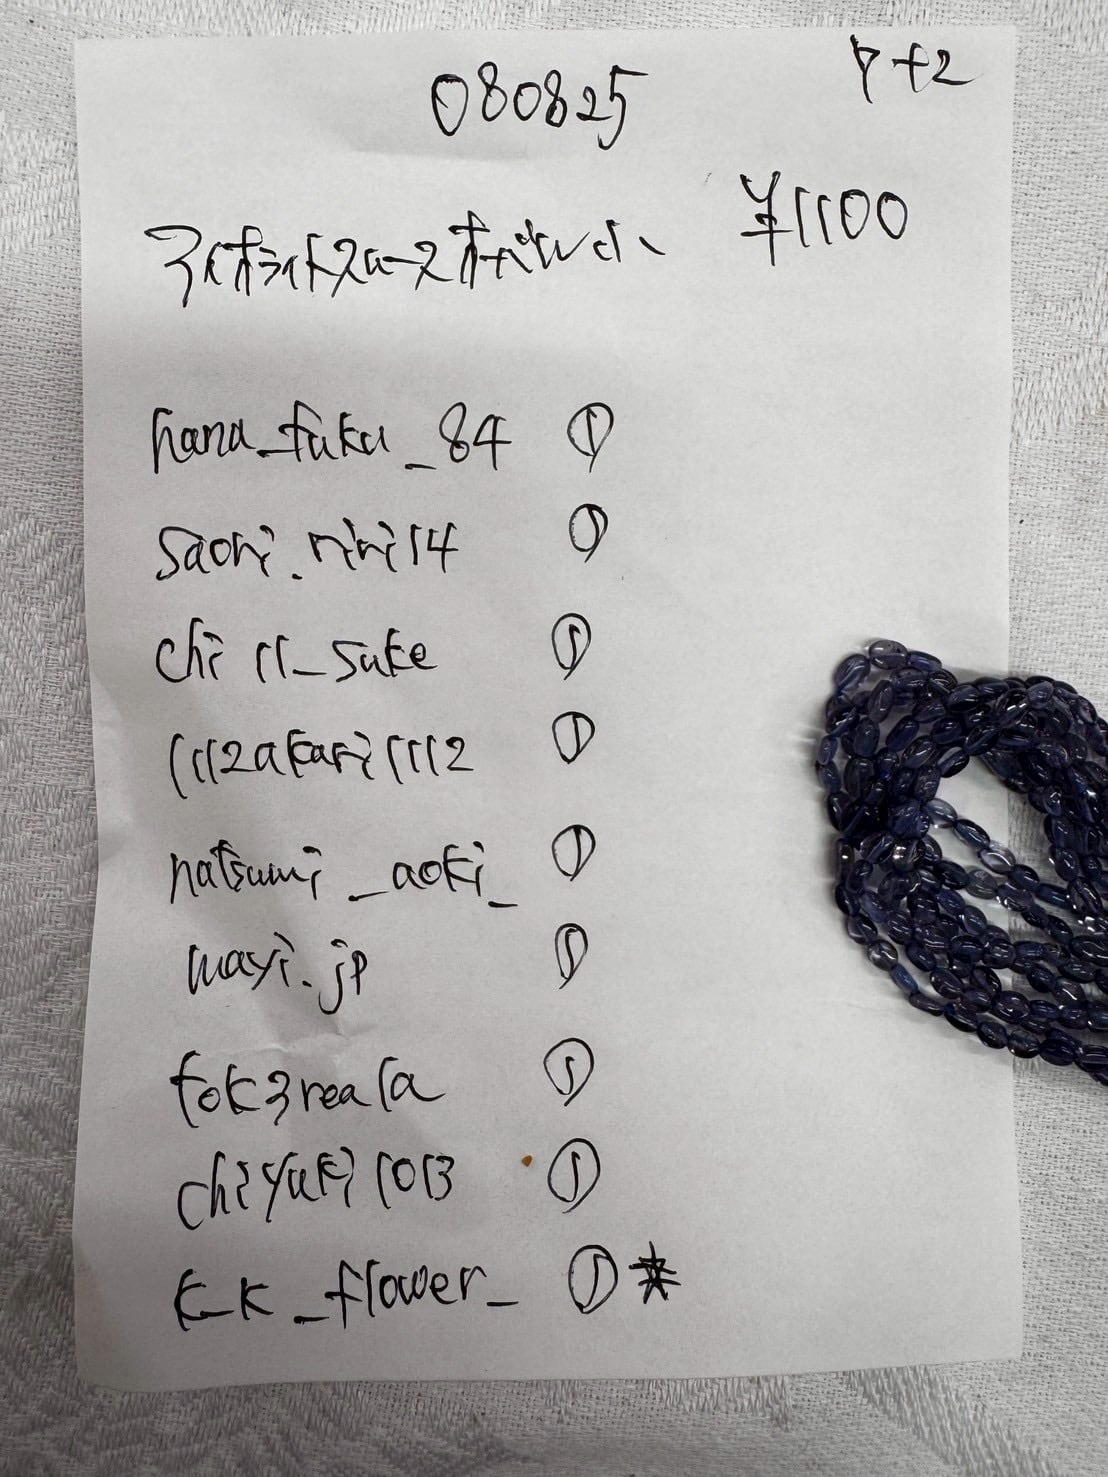 080825
7+2
アイオライトスムースオーバル小
¥1100
hana_fuku_84 ①
saori.riri14 ①
chi11_suke ①
1112akari1112 ①
natsumi_aoki_ ①
mayi.jp ①
tok3reala ①
chiyuki1013 ①
k_k_flower_ ①*